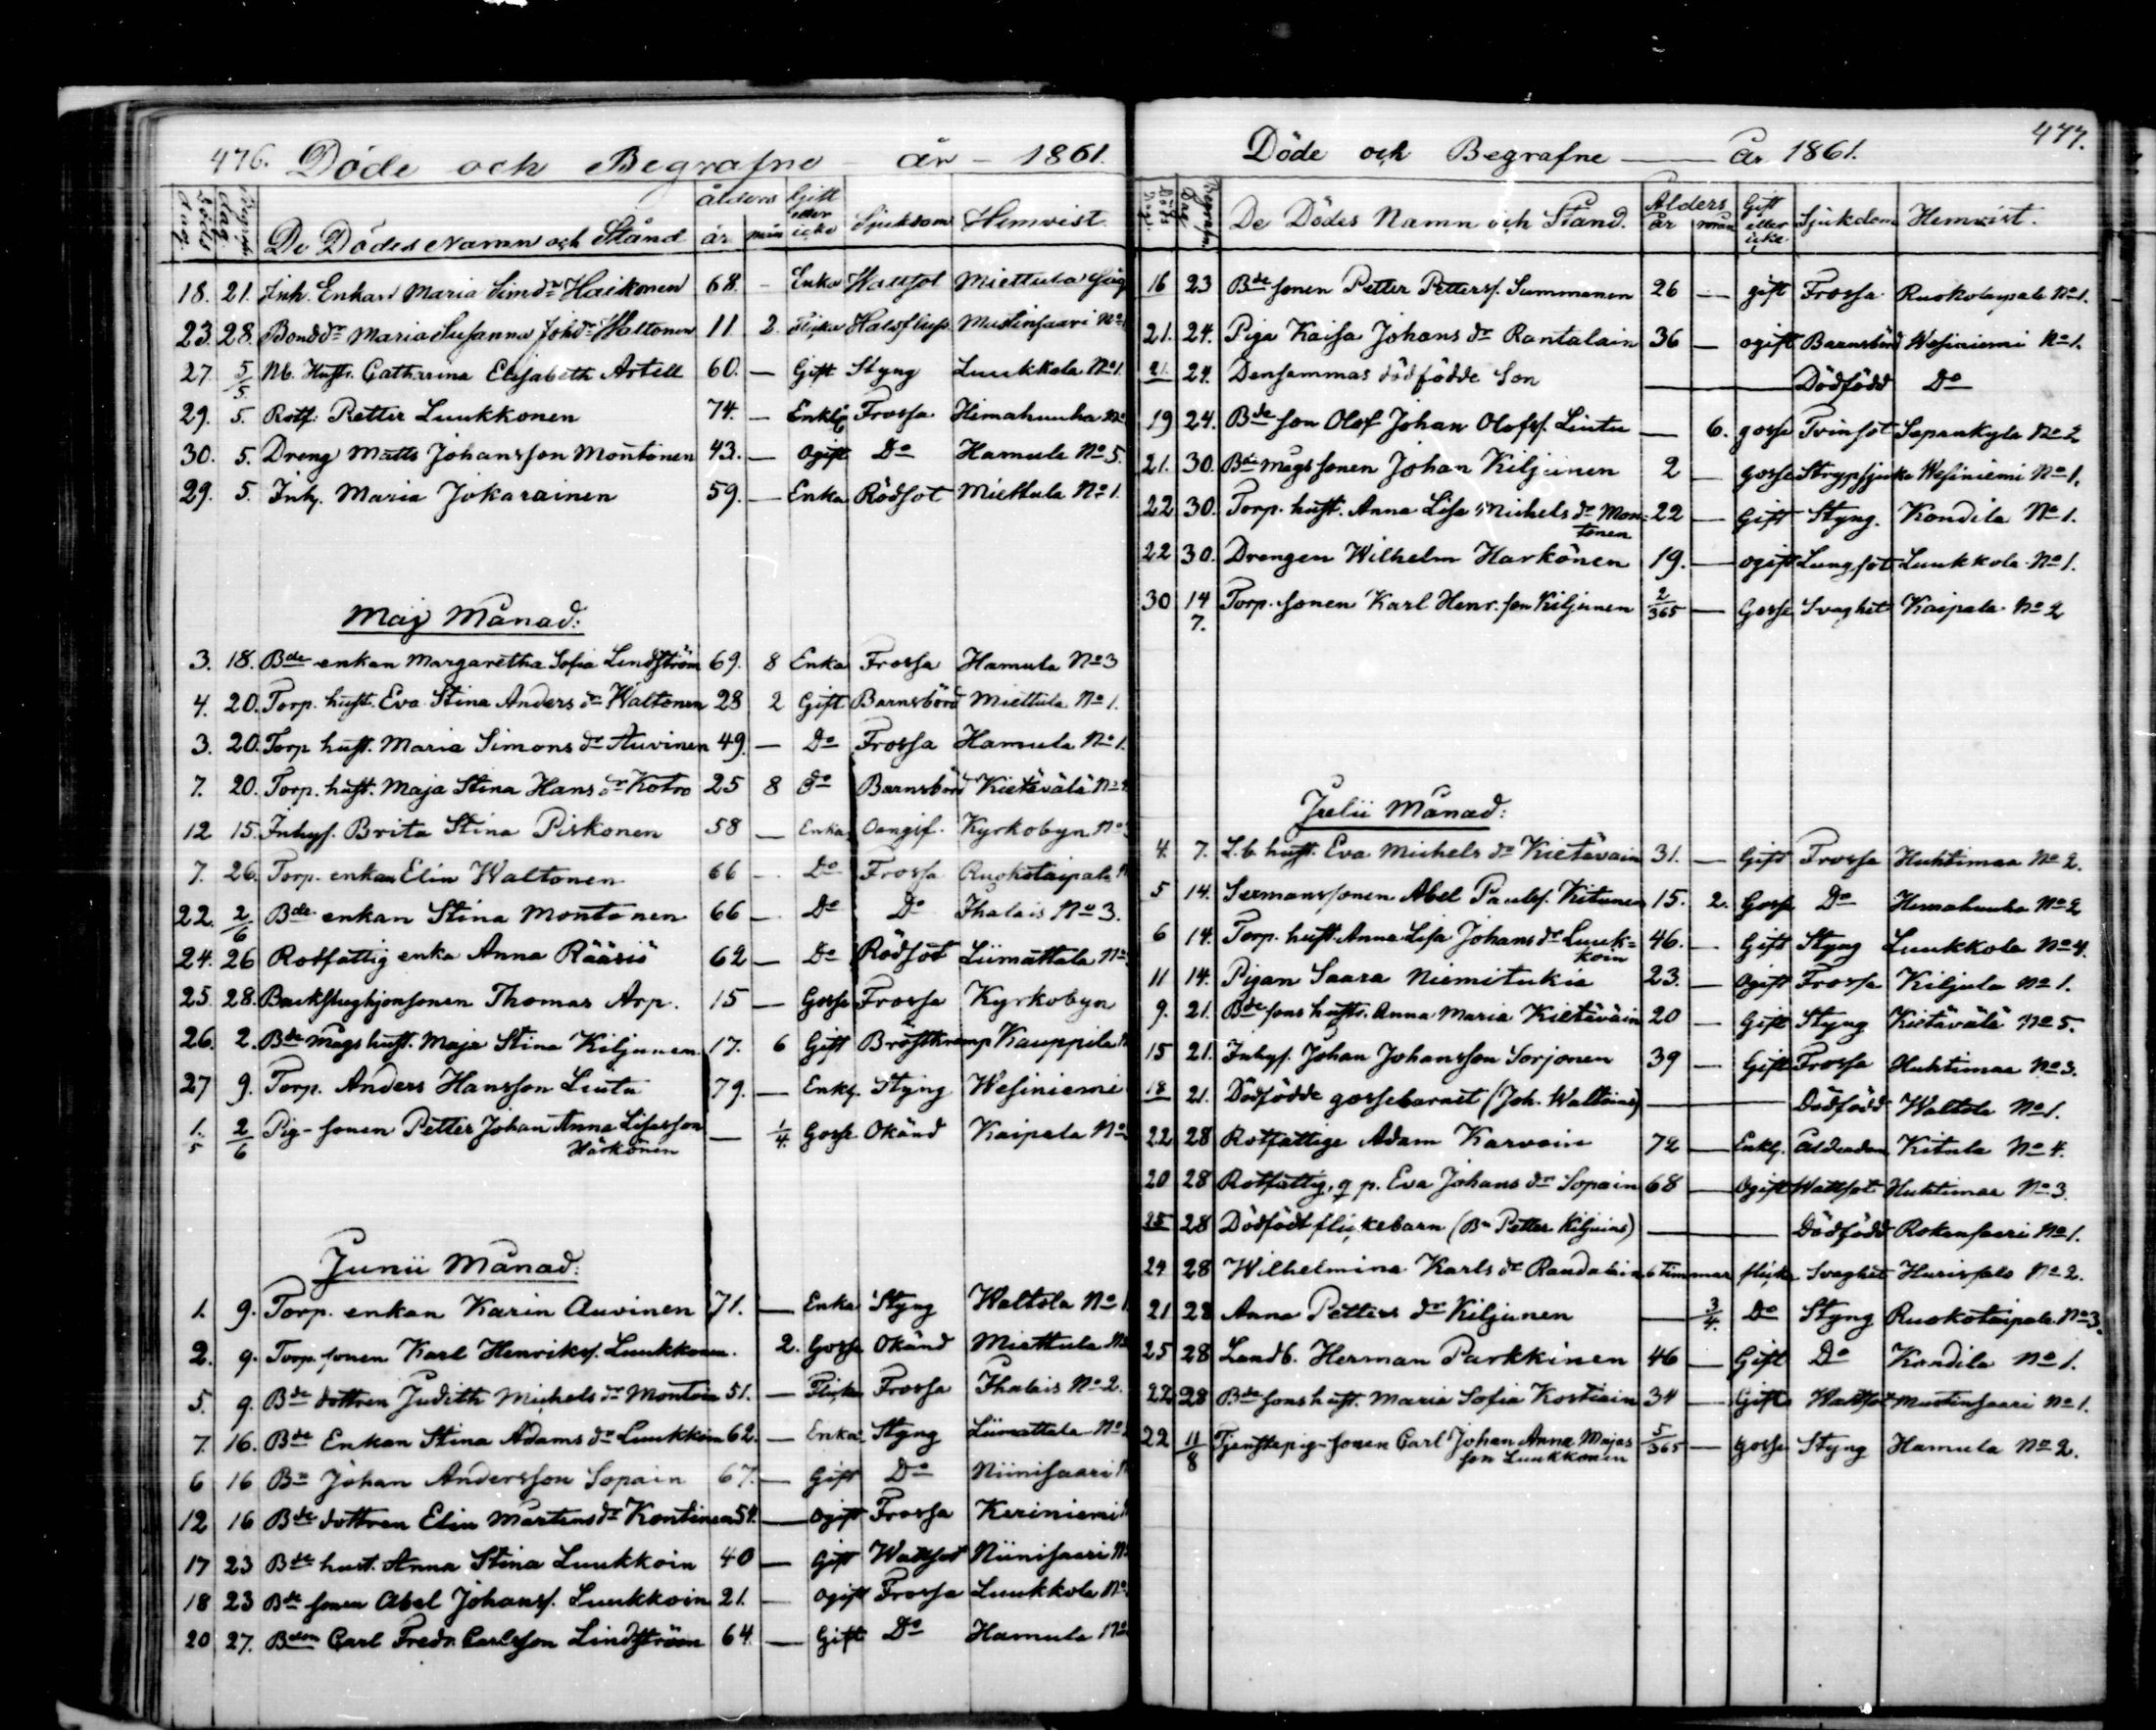 476. Döde och Begrafne – år – 1861.
Döds dag. Begrafn. dag De Dödes Namn och Stånd ålders år mån Gift eller icke Sjukdom Hemvist
18. 21. Inh. Enkan Maria Simdr Haikonen 68. – Enka Wattsot Miettula
23. 28. Bonddr Maria Susanna Johdr Waltonen 11. 2. Flicka Halsfluss. Mustinsaari No
27. 5/5 Nb. Hustr. Catharina Elisabeth Artell 60. — Gift Styng Luukkola No 1.
29. 5. Rotf. Petter Luukkonen 74. — Enkl. Frossa Himahuuha No
30. 5. Dreng Matts Johansson Montonen 43. — Ogift Do Hamula No 5.
29. 5. Inhy. Maria Jokarainen 59. — Enka Rödsot Miettula No 1.
Maij Månad:
3. 18. Bde enkan Margaretha Sofia Lindström 69. 8 Enka Frossa Hamula No 3
4. 20. Torp. hust. Eva Stina Anders dr Waltonen 28 2 Gift Barnsbörd Miettula No 1.
3. 20. Torp hust. Maria Simons dr Auvinen 49. — Do Frossa Hamula No 1.
7. 20. Torp. hust. Maja Stina Hans dr Kotro 25 8 do Barnsbörd Kietävälä No
12 15. Inhys. Brita Stina Piskonen 58 — Enka Oangif. Kyrkobyn No
7. 26. Torp. enkan Elin Waltonen 66 – Do Frossa Ruokotaipale
22. 2/6 Bde enkan Stina Montonen 66 – Do Do Ihalais No 3.
24. 26 Rotfattig enka Anna Rääsiö 62 — Do Rödsot Liimattala No
25. 28. Backstughjonsonen Thomas Arp. 15 — Gosse Frossa Kyrkobyn
26. 2. Bde Mågs hust. Maja Stina Kiljunen 17. 6 Gift Bröstkramp Kauppila
27 9. Torp. Anders Hansson Lintu 79. — Enkl. Styng Wesiniemi
1./5 2/6 Pig-sonen Petter Johan Anna Lisasson — 1/4. Gosse Okänd Kaipala No
Härkönen
Junii Månad:
1. 9. Torp. enkan Karin Auvinen 71. — Enka Styng Waltola No 1
2. 9. Torp. sonen Karl Henrikss. Luukkonen. 2. Gosse Okänd Miettula No
5. 9. Bde dottren Judith Michels dr Montoin 51. — Flicka Frossa Ihalais No 2.
7. 16. Bde Enkan Stina Adams dr Luukkoin 62. — Enka Styng Liimattala No
6 16 Bn Johan Andersson Sopain 67. — Gift Do Niinisaari
12 16 Bde dottren Elin Martens dr Kontinen 54. — ogift Frossa Keriniemi
17 23 Bde hust. Anna Stina Luukkoin 40 — Gift Wattsot Niinisaari No
18 23 Bde sonen Abel Johanss. Luukkoin 21. — ogift Frossa Luukkola No
20 27. Bden Carl Fredr. Carlsson Lindström 64. — Gift Do Hamula No
Döde och Begrafne — år 1861. 477.
Döds dag. Begrafn. dag De Dödes Namn och Stånd. Ålders år mån Gift eller icke Sjukdom Hemvist.
16 23 Bde sonen Petter Petterss. Summanen 26 — gift Frossa Ruokotaipale No 1.
21. 24. Piga Kaisa Johans dr Rantalain 36 — ogift Barnsbörd Wesiniemi No 1.
21. 24. Densammas dödfödde Son — Dödfödd Do
19 24. Bde son Olof Johan Olofss. Lintu — 6. gosse Tvinsot Saparkylä No 2
21. 30. Bde mågs sonen Johan Kiljuinen 2 — gosse Strypsjuka Wesiniemi No 1.
22 30. Torp. hust. Anna Lisa Michels dr Mon= 22 — Gift Styng. Kondila No 1.
tonen
22 30. Drengen Wilhelm Harkönen 19. — ogift Lungsot Luukkola No 1.
30 14/7. Torp. sonen Karl Henr. son Kiljunen 2/365 — Gosse Svaghet Kaipala No 2
Julii Månad:
4. 7. L.b. hust. Eva Michels dr Kietäväin 31. — Gift Frossa Huhtimaa No 2.
5 14. Sexmanssonen Abel Paulss. Kitunen 15. 2. Gosse Do Himahuuha No 2
6 14. Torp. hust Anna Lisa Johans dr Luuk= 46. — Gift Styng Luukkola No 4.
koin
11 14. Pigan Saara Niemitukia 23. — Ogift Frossa Kiljula No 1.
9. 21. Bde sons hustr. Anna Maria Kietäväin 20 — Gift Styng Kietävälä No 5.
15 21. Inhys. Johan Johansson Sorjonen 39 — Gift Frossa Huhtimaa No 3.
18 21. Dödfödde gossebarnet (Joh. Waltoins) — Dödfödd Waltola No 1.
22 28 Rotfattige Adam Karvoin 72 — Enkl. Ålderdom Kitula No 4.
20 28 Rotfattig. q p. Eva Johans dr Sopain 68 — Ogift Wattsot Huhtimaa No 3.
25 28 Dödfödt flickebarn (Bn Petter Kiljuins) — Dödfödd Rokansaari No 1.
24 28 Wilhelmina Karls dr Randalain 6 timmar flicka Svaghet Hurissalo No 2.
21 28 Anna Petters dr Kiljunen — 3/4. Do Styng Ruokotaipale No 3.
25 28 Landb. Herman Parkkinen 46 — Gift Do Kondila No 1.
22 28 Bde sons hust. Maria Sofia Kostiain 34 — Gift Wattsot Mustinsaari No 1.
22 11/8 Tjenstepig-sonen Carl Johan Anna Majas 5/365 — gosse Styng Hamula No 2.
son Luukkonen